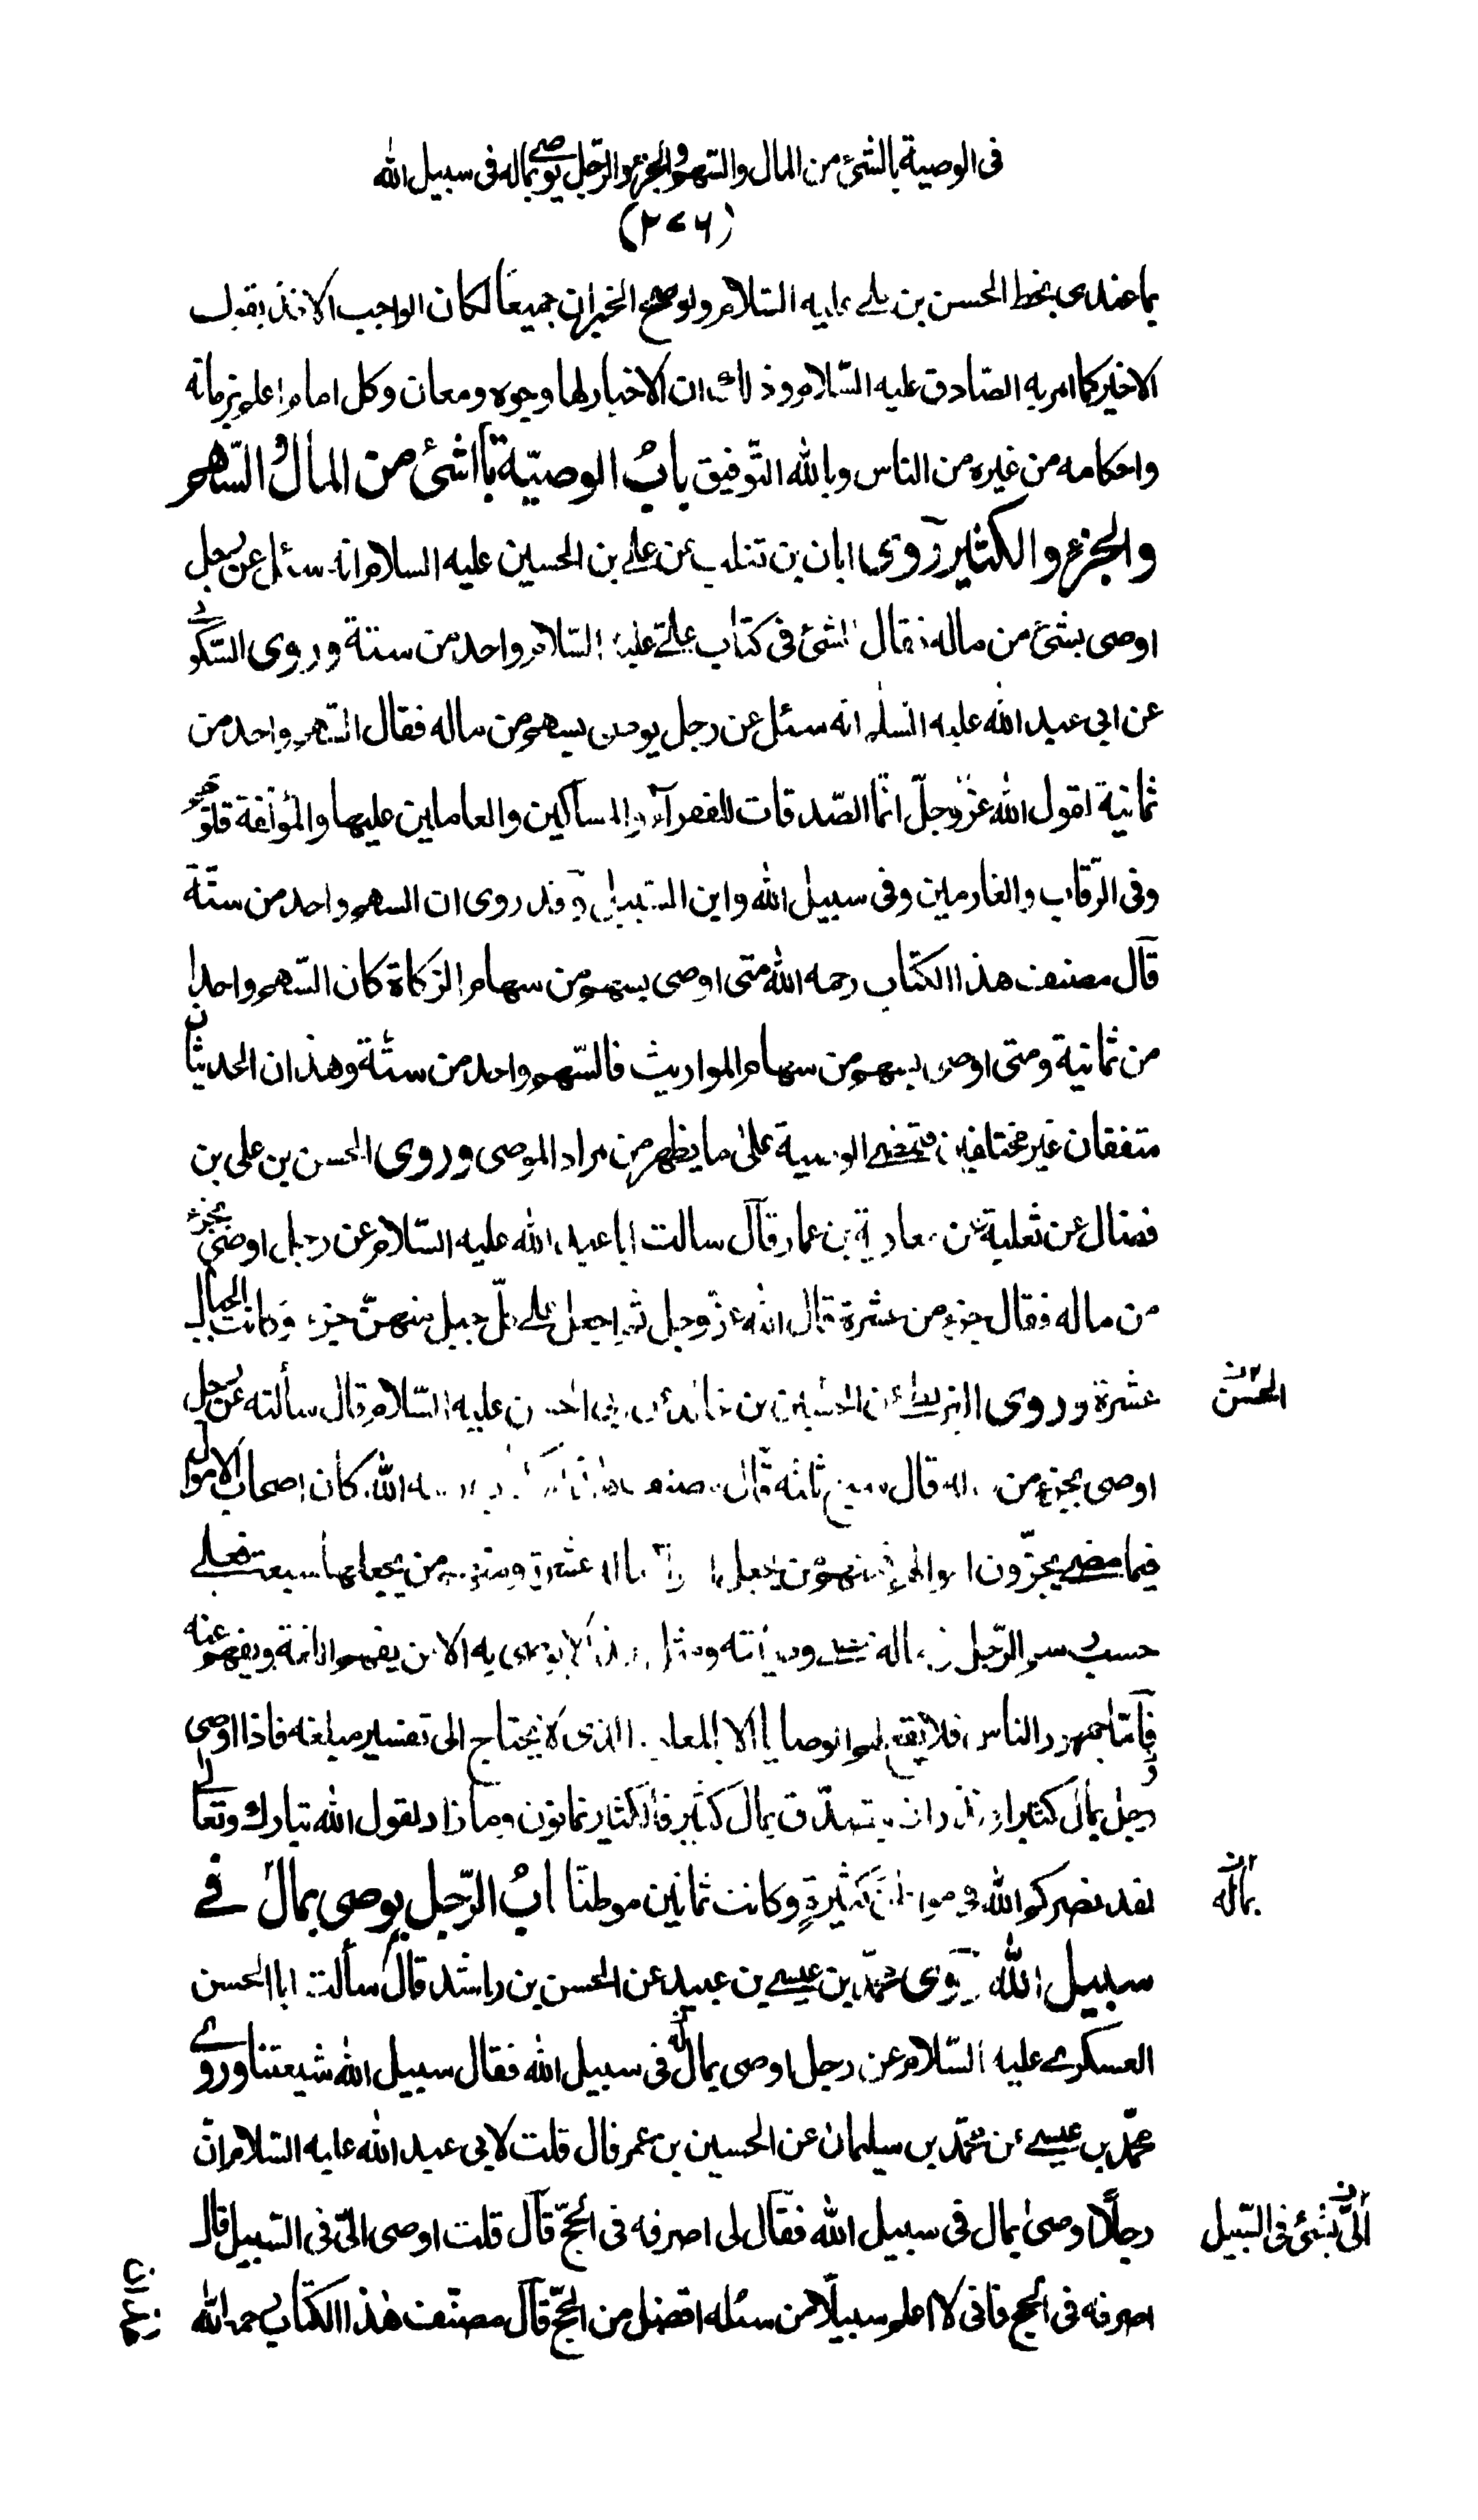 فى الوصية بالشئ من المال والسهم والجزء والرّجل يوصى بماله فى سبيل الله
(٢٧٦)
بما عندى بخط الحسن بن على عليه السّلام ولو صح الخبران جميعًا لكان الواجب الاخذ بقول
الاخير كما امر به الصّادق عليه السّلام وذلك ان الاخبار لها وجوه ومعان وكل امام اعلم بزمانه
واحكامه من غيره من الناس وبالله التّوفيق باب الوصيّة بالشئ من المال والسّهم
والجزء والكثير روى ابان بن تغلب عن على بن الحسين عليه السلام انه سئل عن رجل
اوصى بشئ من ماله فقال الشئ فى كتاب علىّ عليه السّلام واحد من ستة وروى السّكونى
عن ابى عبد الله عليه السلم انه سئل عن رجل يوصى بسهم من ماله فقال السّهم واحد من
ثمانية لقول الله عزّ وجلّ انّما الصّدقات للفقرآء والمساكين والعاملين عليها والمؤلّفة قلوبهم
وفى الرّقاب والغارمين وفى سبيل الله وابن السّبيل وقد روى ان السهم واحد من ستّة
قال مصنف هذا الكتاب رحمه الله متى اوصى بسهم من سهام الزكاة كان السّهم واحدا
من ثمانية ومتى اوصى بسهم من سهام المواريث فالسّهم واحد من ستّة وهذان الحديثان
متفقان غير مختلفين فتمضى الوصية على ما يظهر من مراد الموصى وروى الحسن بن على بن
فضال عن ثعلبة عن معاوية بن عمار قال سالت ابا عبد الله عليه السّلام عن رجل اوصى بجزء
من ماله فقال جزء من عشرة قال الله عزّ وجل ثم اجعل على كلّ جبل منهنّ جزء وكانت الجبال
عشرة وروى البزنطى عن الحسين بن خالد عن ابى الحسن عليه السّلام قال سألته عن رجل
الحسن ن
اوصى بجزء من ماله قال سبع ثلثه قال مصنف هذا الكتاب رحمه الله كان اصحاب الاموال
فيما مضى يجزّون اموالهم فمنهم من يجعل اجزاء ماله عشرة ومنهم من يجعلها سبعة فعلى
حسب رسم الرّجل فى ماله تمضى وصيّته ومثل هذا لا يوصى به الا من يفهم اللغة ويفهم عنه
فامّا جمهور الناس فلا تقع لهم الوصايا الا بالمعلوم الذى لا يحتاج الى تفسير مبلغه فاذا اوصى
رجل بمال كثير او نذر ان يتصدّق بمال كثير فالكثير ثمانون وما زاد لقول الله تبارك وتعالى
لقد نصركم الله فى مواطن كثيرةٍ وكانت ثمانين موطنًا باب الرّجل يوصى بمال فى
بماله ن
سبيل الله روى محمّد بن عيسى بن عبيد عن الحسن بن راشد قال سألت ابا الحسن
العسكرى عليه السّلام عن رجل اوصى بمال له فى سبيل الله فقال سبيل الله شيعتنا وروى
محمّد بن عيسى عن محمّد بن سليمان عن الحسين بن عمر قال قلت لابى عبد الله عليه السّلام انّ
رجلًا اوصى بمال فى سبيل الله فقال لى اصرفه فى الحجّ قال قلت اوصى الىّ فى السّبيل قال
الىّ بشئ فى السّبيل ن
اصرفه فى الحج فانى لا اعلم سبيلًا من سبله افضل من الحجّ قال مصنّف هذا الكتاب رحمه الله